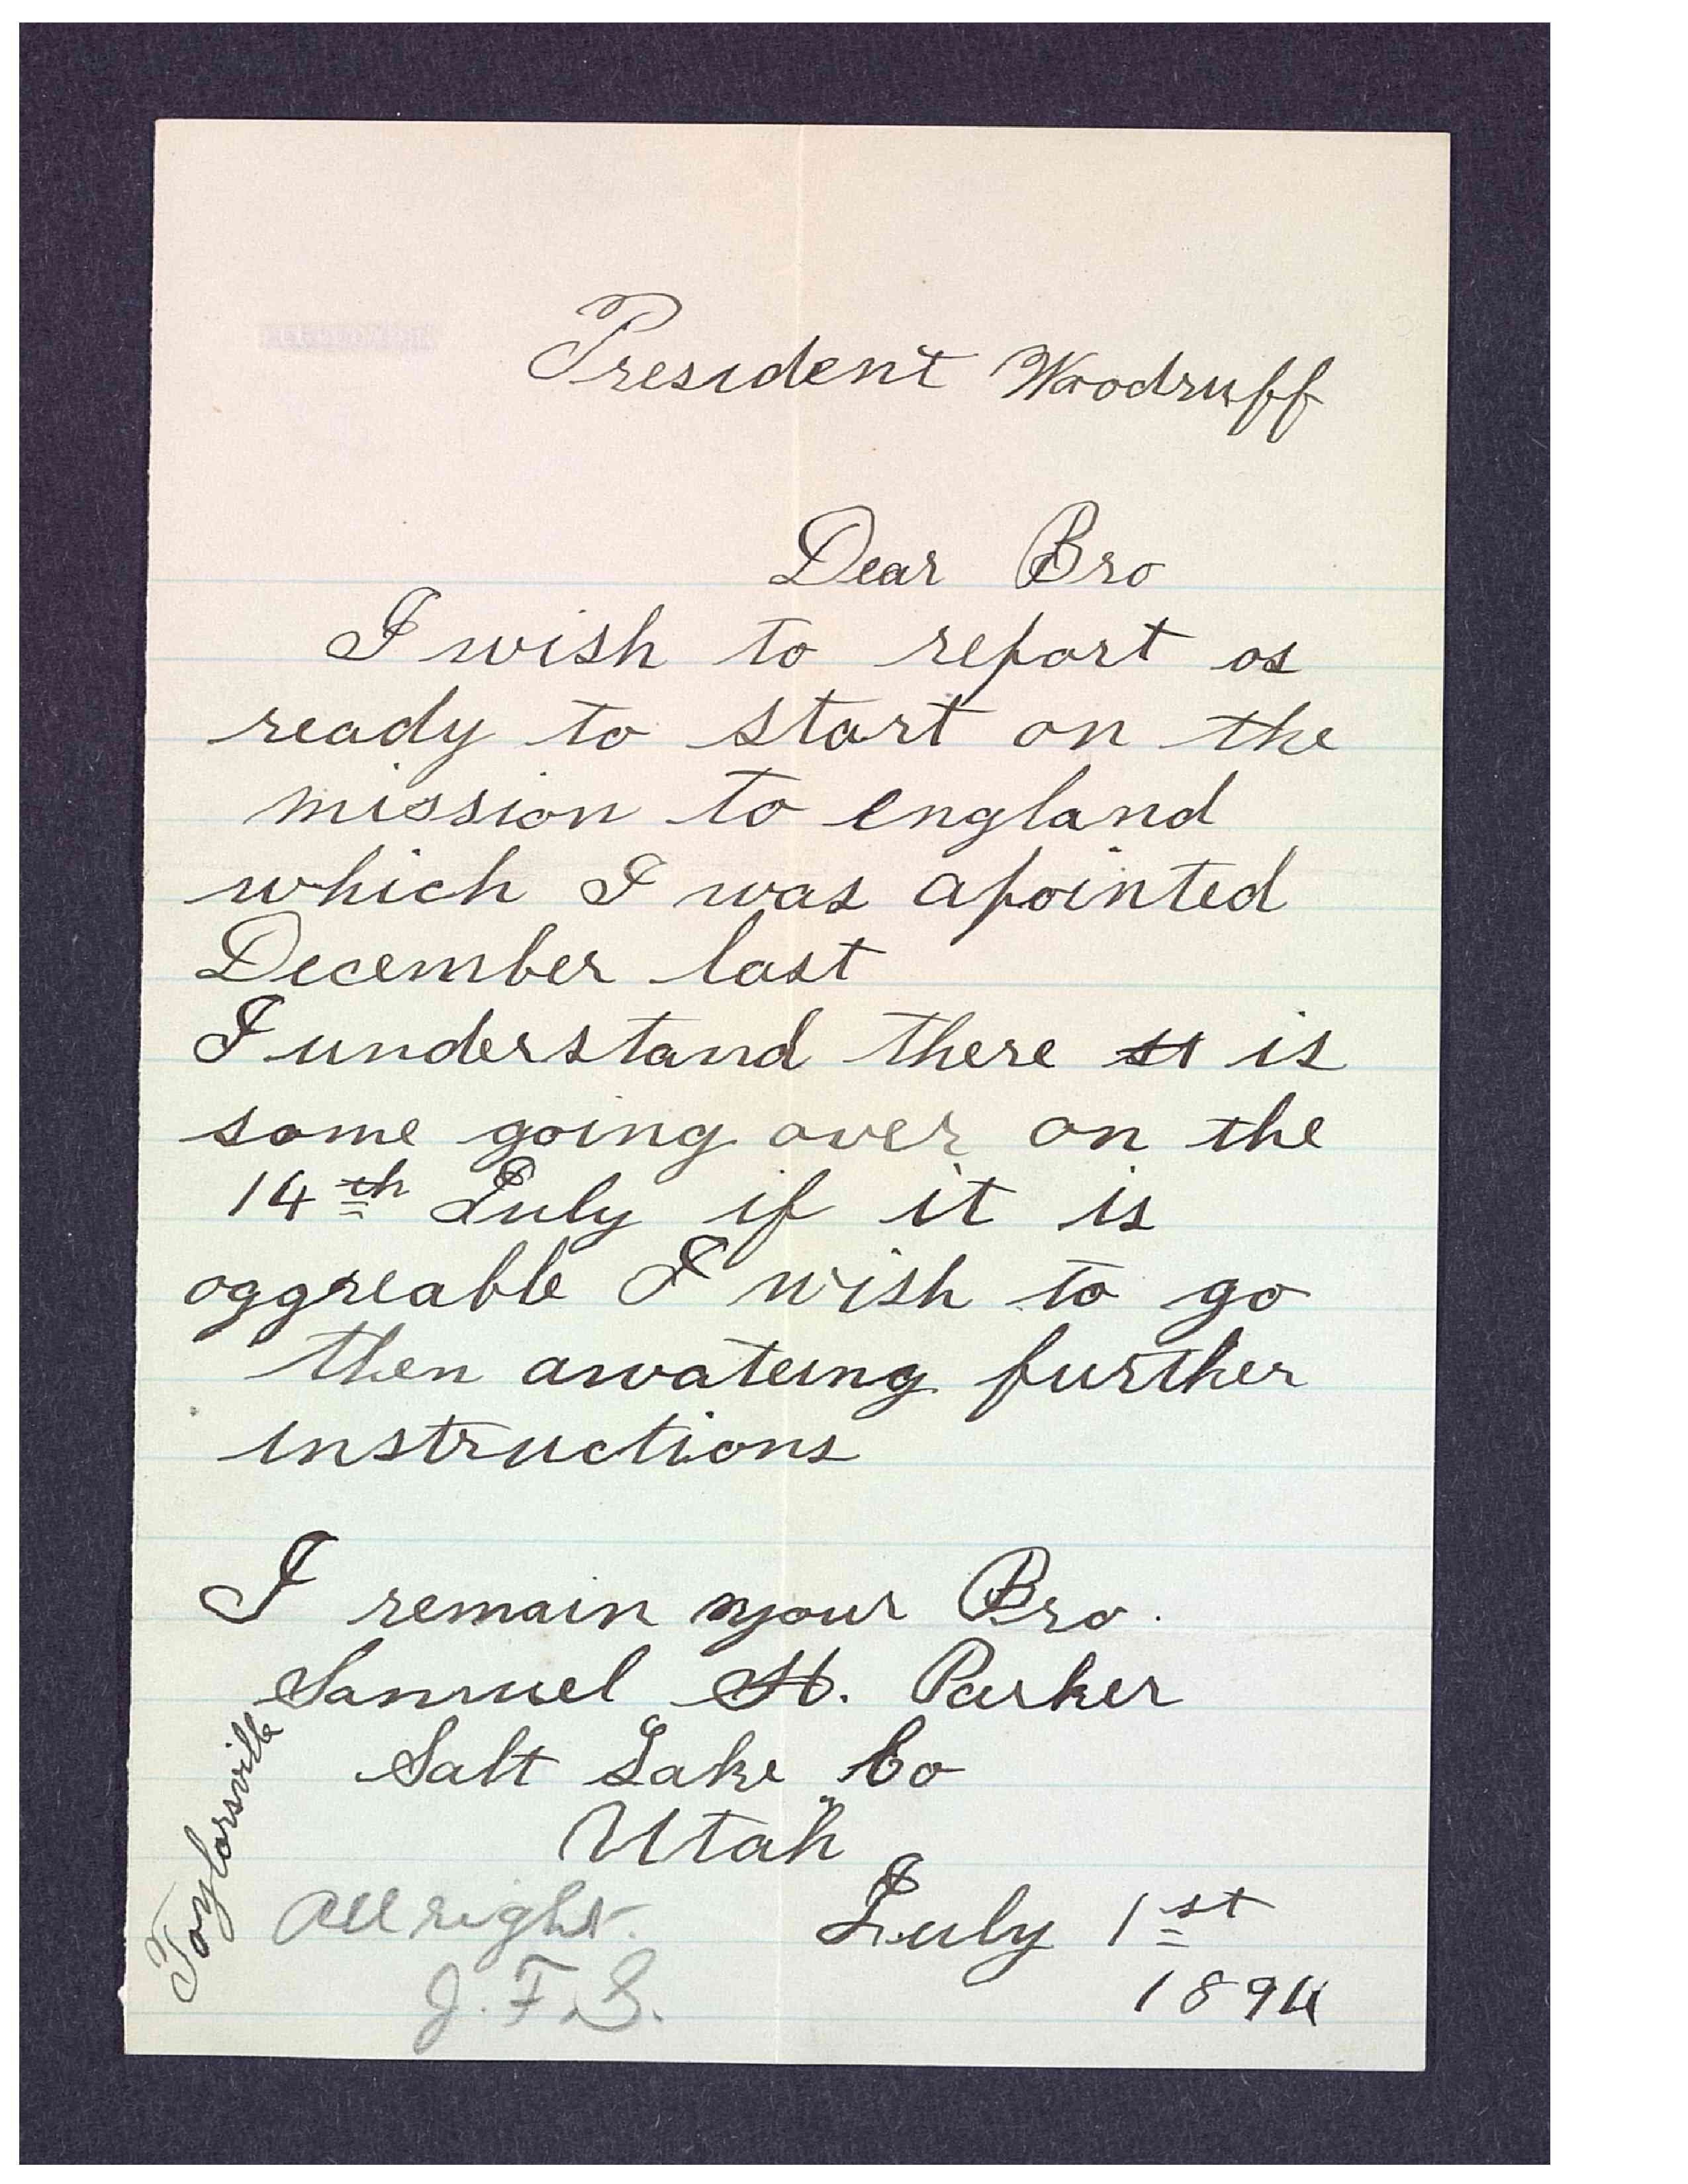 President Woodruff
Dear Bro
I wish to report as
ready to start on the
mission to england
which I was apointed
December last
I understand there is
some going over on the
14th July if it is
aggreable I wish to go
then awateing further
instructions
I remain your Bro.
Samuel H. Parker
Taylorsville
Salt Lake Co
Utah
July 1st
1894
All right.
J. F. S.